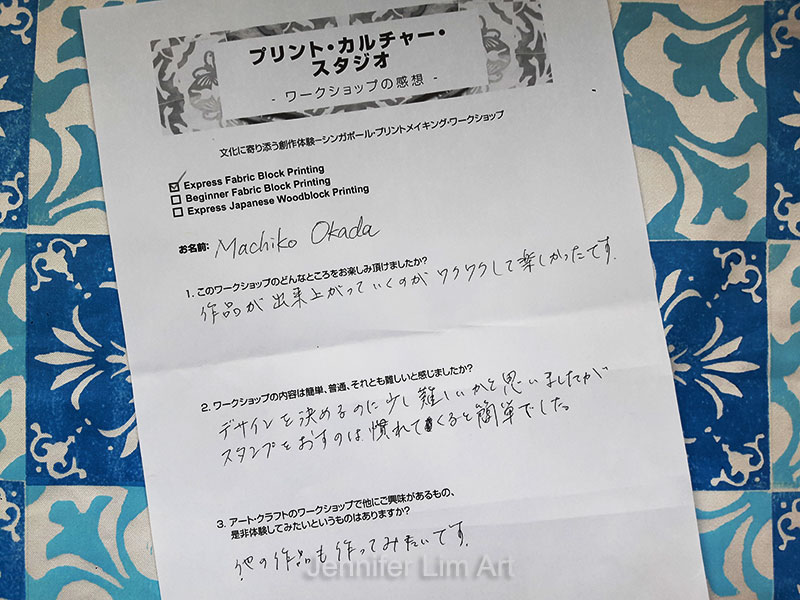 プリント・カルチャー・
スタジオ
- ワークショップの感想 -
文化に寄り添う創作体験–シンガポール・プリントメイキング・ワークショップ
Express Fabric Block Printing
Beginner Fabric Block Printing
Express Japanese Woodblock Printing
お名前: Machiko Okada
1. このワークショップのどんなところをお楽しみ頂けましたか?
作品が出来上がっていくのがワクワクして楽しかったです.
2. ワークショップの内容は簡単、普通、それとも難しいと感じましたか?
デザインを決めるのに少し難しいかと思いましたが
スタンプをおすのは慣れてくると簡単でした。
3. アート・クラフトのワークショップで他にご興味があるもの、
是非体験してみたいというものはありますか?
他の作品も作ってみたいです.
Jennifer Lim Art